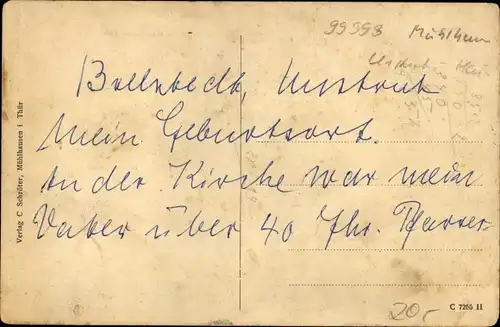 99998 Mühlhausen
Bollstedt, Unstrut
Mein Geburtsort.
An der Kirche war mein
Vater über 40 Jhr. Pfarrer
Verlag C Schröter, Mühlhausen i Thür
C 7265 H
20,-